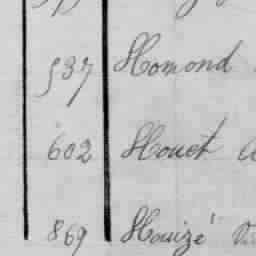 537 Homond
602 Houet
869 Houizé